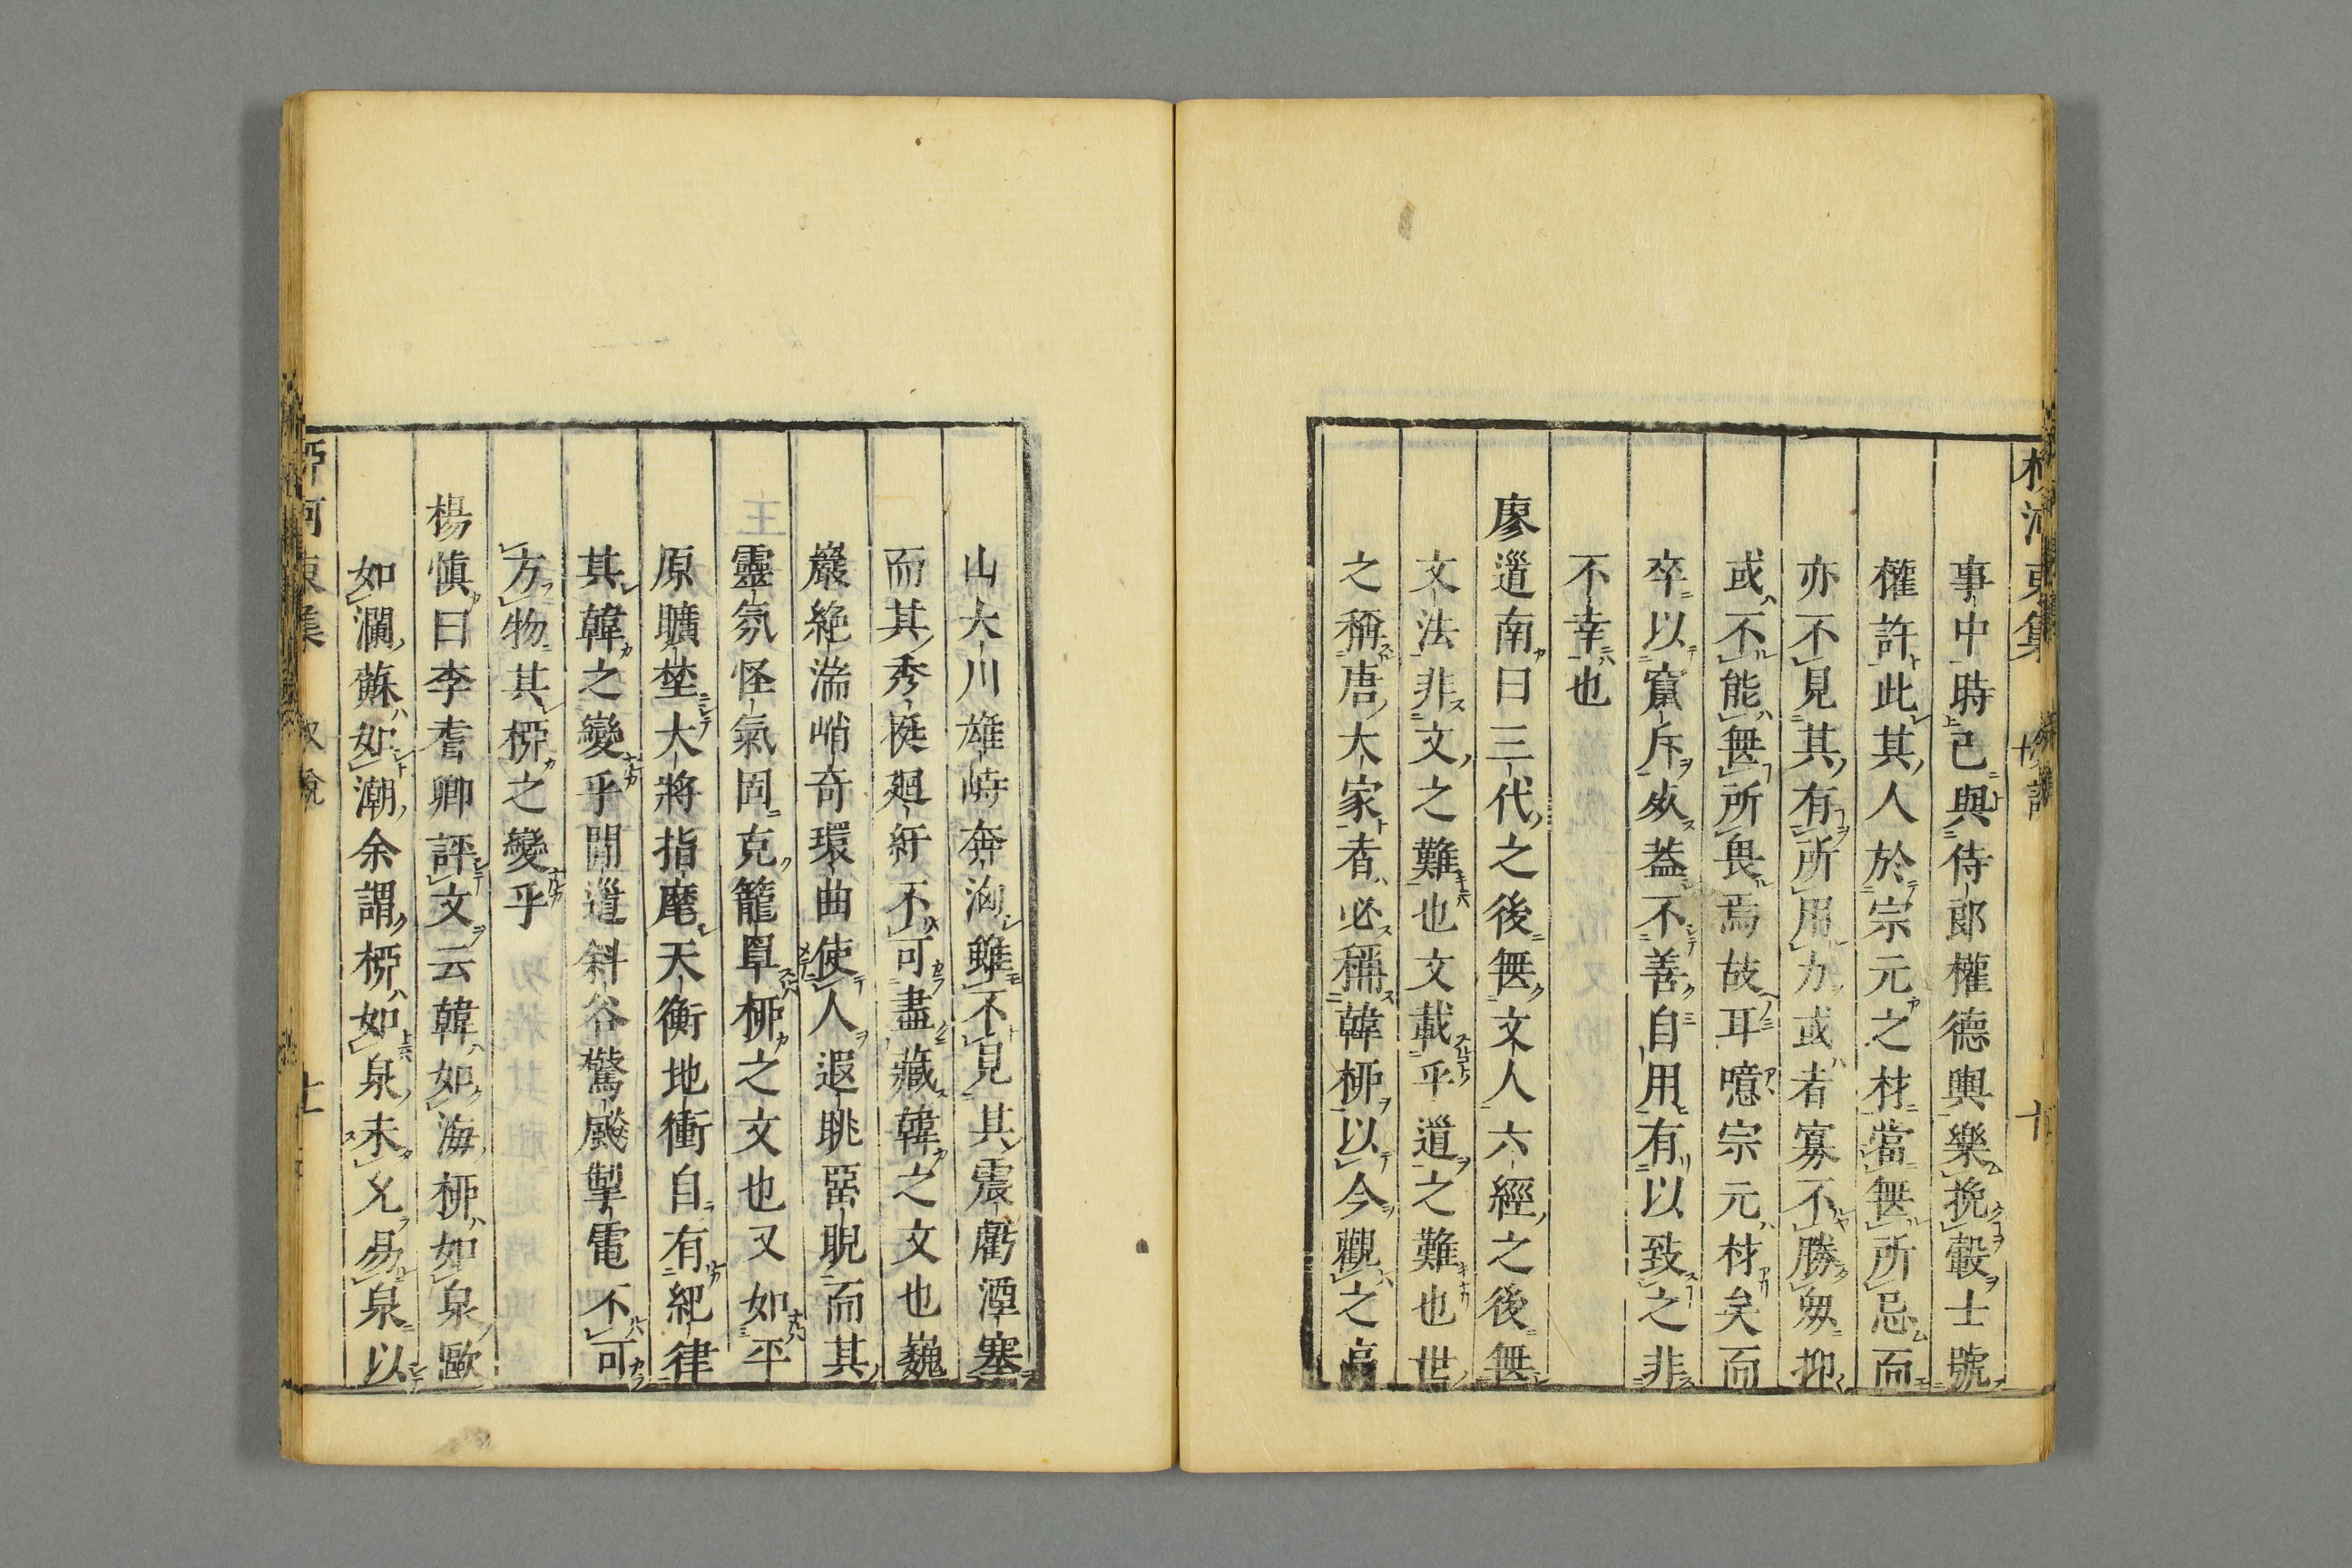 柳河東集 敘說 十
事中時已與侍郎權德輿樂挽轂士號
權許此其人於宗元之材當無所忌而
亦不見其有所用力或者寡不勝匆抑
或不能無所畏焉故耳噫宗元材矣而
卒以竄斥死蓋不善自用有以致之非
不幸也
廖道南曰三代之後無文人六經之後無
文法非文之難也文載乎道之難也世
之稱唐大家者必稱韓柳以今觀之高
山大川雄峙奔洶雖不見其震虩潭塞
而其秀挺廻紆不可盡藏韓之文也巍
巖絶湍峭奇環曲使人遐眺㗁睨而其
靈氛怪氣固克籠罩柳之文也又如平
原曠埜大將指麾天衡地衝自有紀律
其韓之變乎間道斜谷驚飈掣電不可
方物其柳之變乎
楊慎曰李耆卿評文云韓如海柳如泉歐
如瀾蘇如潮余謂柳如泉未允易泉以
柳河東集 敘說